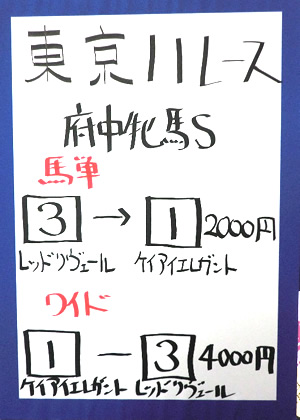 東京11レース
府中牝馬S
馬単
3 → 1 2000円
レッドリヴェール ケイアイエレガント
ワイド
1 − 3 4000円
ケイアイエレガント レッドリヴェール